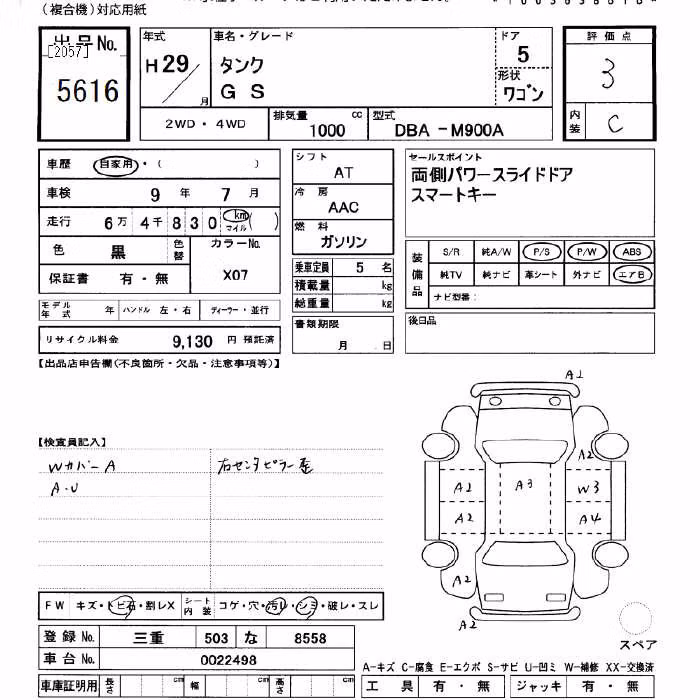 (複合機)対応用紙
出品No.
[2057]
5616
年式
H29/月
車名・グレード
タンク
GS
ドア
5
形状
ワゴン
評価点
3
内装
C
2WD・4WD
排気量
1000 cc
型式
DBA-M900A
車歴 自家用・( )
車検 9年 7月
走行 6万 4千 8 3 0 km マイル ( )
色 黒 色替
カラーNo.
X07
保証書 有・無
モデル年式 年 ハンドル 左・右 ディーラー・並行
リサイクル料金 9,130 円 預託済
シフト
AT
冷房
AAC
燃料
ガソリン
乗車定員 5 名
積載量 kg
総重量 kg
書類期限
月 日
セールスポイント
両側パワースライドドア
スマートキー
装備品
S/R 純A/W P/S P/W ABS
純TV 純ナビ 革シート 外ナビ エアB
ナビ型番:
後日品
【出品店申告欄(不良箇所・欠品・注意事項等)】
【検査員記入】
Wカバー A 右センタピラー歪
A・U
FW キズ・トビ石・割レX シート内装 コゲ・穴・汚レ・シミ・破レ・スレ
登録No. 三重 503 な 8558
車台No. 0022498
車庫証明用 長さ cm 幅 cm 高さ cm
A1
A2
A2 A3 W3
A2 A4
A2
A2
スペア
A-キズ C-腐食 E-エクボ S-サビ U-凹ミ W-補修 XX-交換済
工具 有・無 ジャッキ 有・無